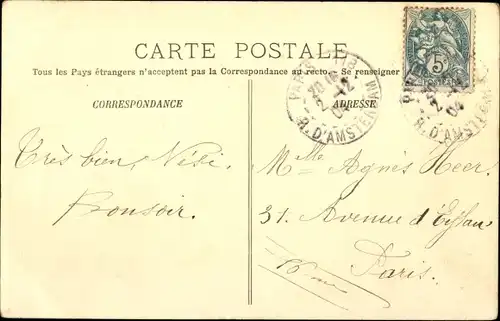 CARTE POSTALE
Tous les Pays étrangers n'acceptent pas la Correspondance au recto. Se renseigner
CORRESPONDANCE
ADRESSE
Très bien,
Bonsoir.
Mlle Agnès Heer.
31. Avenue d'Eylau
Paris.
16 me
PARIS
2 -12
04
R. D'AMSTERDAM
5
2
04
R. D'AMSTERDAM